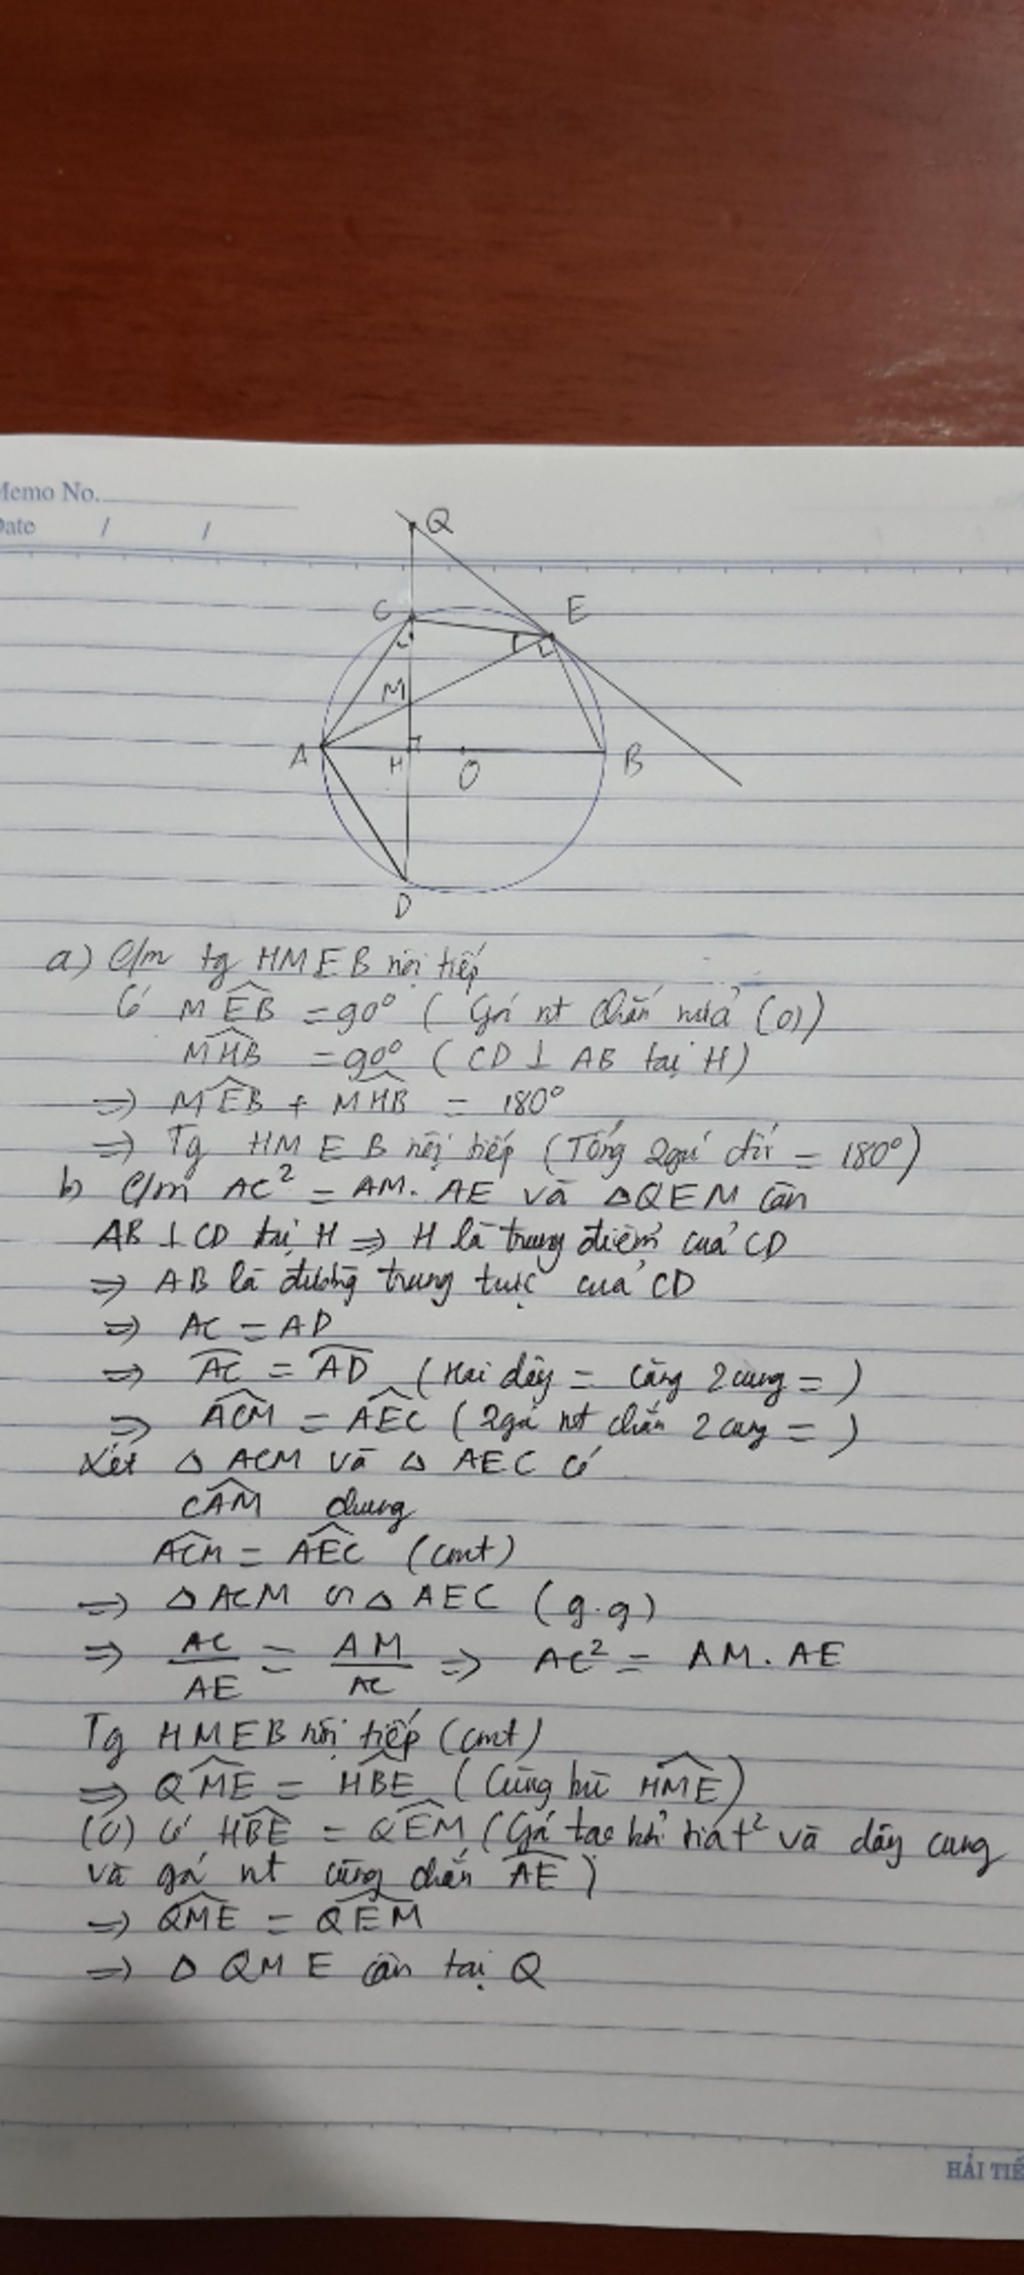 Memo No.
Date / /
Q
C
E
M
A
H
O
B
D
a) C/m tg HMEB nội tiếp
Có MEB = 90° ( Góc nt chắn nửa (O))
MHB = 90° ( CD ⊥ AB tại H)
=> MEB + MHB = 180°
=> Tg HMEB nội tiếp (Tổng 2 góc đối = 180°)
b) C/m AC² = AM. AE và △QEM cân
AB ⊥ CD tại H => H là trung điểm của CD
=> AB là đường trung trực của CD
=> AC = AD
=> AC = AD (Hai dây = căng 2 cung = )
=> ACM = AEC ( 2 góc nt chắn 2 cung = )
Xét △ ACM và △ AEC có
CAM chung
ACM = AEC (cmt)
=> △ ACM ∽ △ AEC ( g.g)
=> AC/AE = AM/AC => AC² = AM. AE
Tg HMEB nội tiếp (cmt)
=> QME = HBE ( Cùng bù HME)
(O) có HBE = QEM ( Góc tạo bởi tia t² và dây cung
và góc nt cùng chắn AE )
=> QME = QEM
=> △ QME cân tại Q
HẢI TIẾ